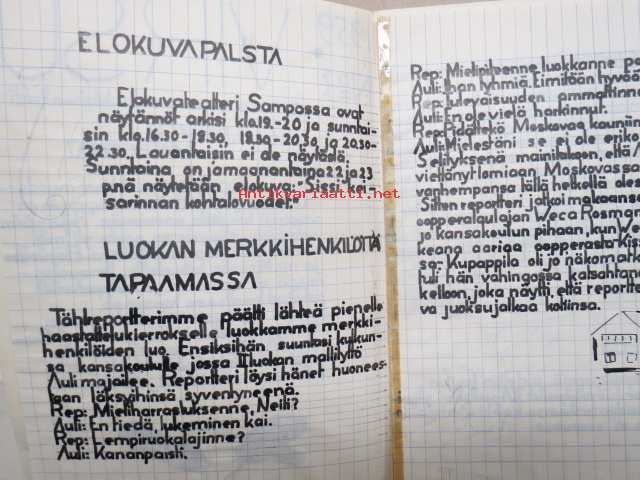 ELOKUVAPALSTA
Elokuvateatteri Sampossa ovat
näytännöt arkisi klo.19.-20 ja sunntai-
sin klo.16.30-18.30, 18.30-20.30 ja 20.30-
22.30. Lauantaisin ei de näytöstä.
Sunntaina, on ja maanantaina 22 ja 23
pnä näytetään elokuva: "Sissi kei-
sarinnan kohtalovuodet."
LUOKAN MERKKIHENKILÖITÄ
TAPAAMASSA
Tähtireportterimme päätti lähteä pienelle
haastattelukierrokselle luokkamme merkki-
henkilöiden luo. Ensiksihän suuntasi kulkun-
sa kansakoululle jossa II luokan mallityttö
Auli majailee. Reportteri löysi hänet huonees-
taan läksyihinsä syventyneenä.
Rep: Mieliharrastuksenne, Neiti?
Auli: En tiedä, lukeminen kai.
Rep: Lempiruokalajinne?
Auli: Kananpaisti.
Rep: Mielipiteenne luokkanne
Auli: Ihan tyhmiä. Eimitään hyvää
Rep: Tulevaisuuden ammattinne
Auli: En ole vielä harkinnut.
Rep: Pidättekö Moskovaa
Auli: Mielestäni se ei ole
Selityksenä mainittakoon, että
viettänyt lomiaan. Moskovassa
vanhempansa tällä hetkellä
Sitten reportteri jatkoi matkaansa
oopperalaulajan Weca
jo kansakoulun pihaan, kun
keana aariaa oopperasta
sa- Kupappila oli jo
tuli hän vahingossa katsahtan
kelloon, joka näytti, että
va juoksujalkaa kotiinsa.
Antikvariaatti.net